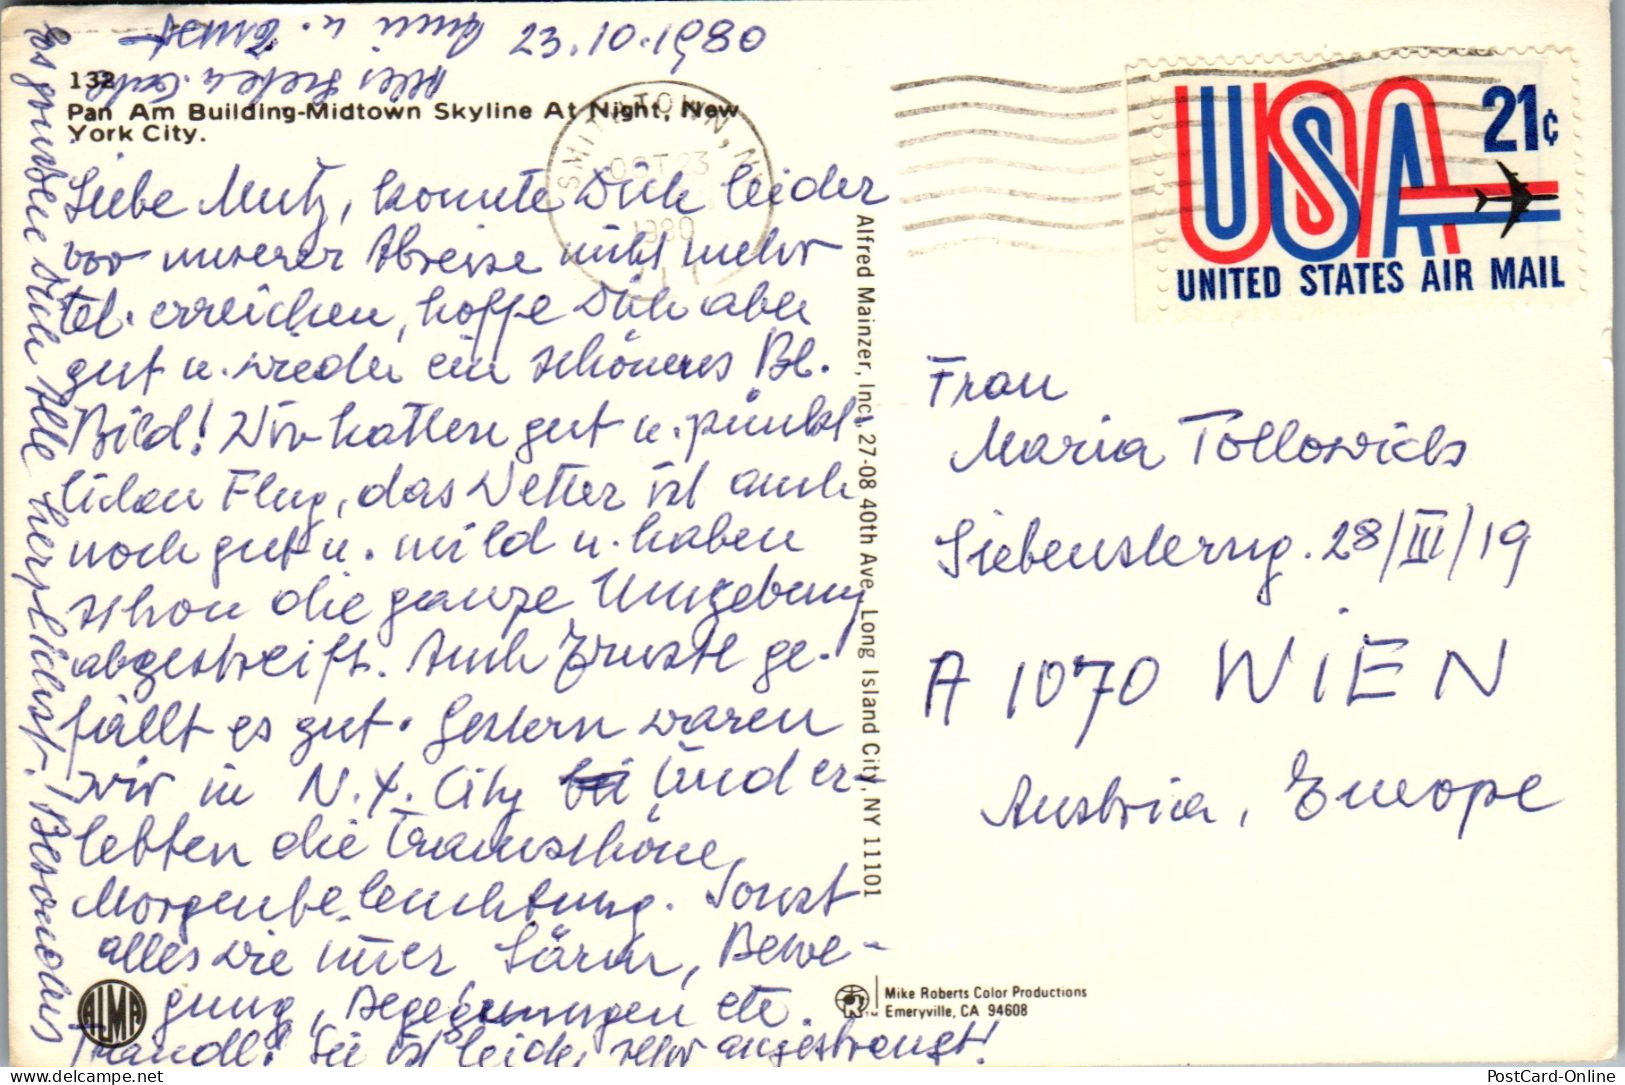 23.10.1980
132
Pan Am Building-Midtown Skyline At Night, New
York City.
Liebe Mutz, konnte Dich leider
vor unserer Abreise nicht mehr
tel. erreichen, hoffe Dich aber
gut u. wieder ein schöneres Bl.
Bild! Wir hatten gut u. pünkt
lichen Flug, das Wetter ist auch
noch gut u. mild u. haben
schon die ganze Umgebung
abgestreift. Auch Ernstl ge-
fällt es gut. Gestern waren
wir in N.Y. City und er
lebten die traumschöne
Morgenbeleuchtung. Sonst
alles wie immer Lärm, Bewe-
gung, etc.
Traudl! Sie ist leider sehr angestrengt!
Es grüssen Dich Alle herzlichst! Besonders
Alles Liebe u. Gute
Anni u. Ernst
SMITHTOWN, NY
OCT 23
1980
USA 21¢
UNITED STATES AIR MAIL
Alfred Mainzer, Inc., 27-08 40th Ave., Long Island City, NY 11101
Frau
Maria Tollowich
Siebensterng. 28/III/19
A 1070 WIEN
Austria, Europe
ALMA
Mike Roberts Color Productions
Emeryville, CA 94608
PostCard-Online